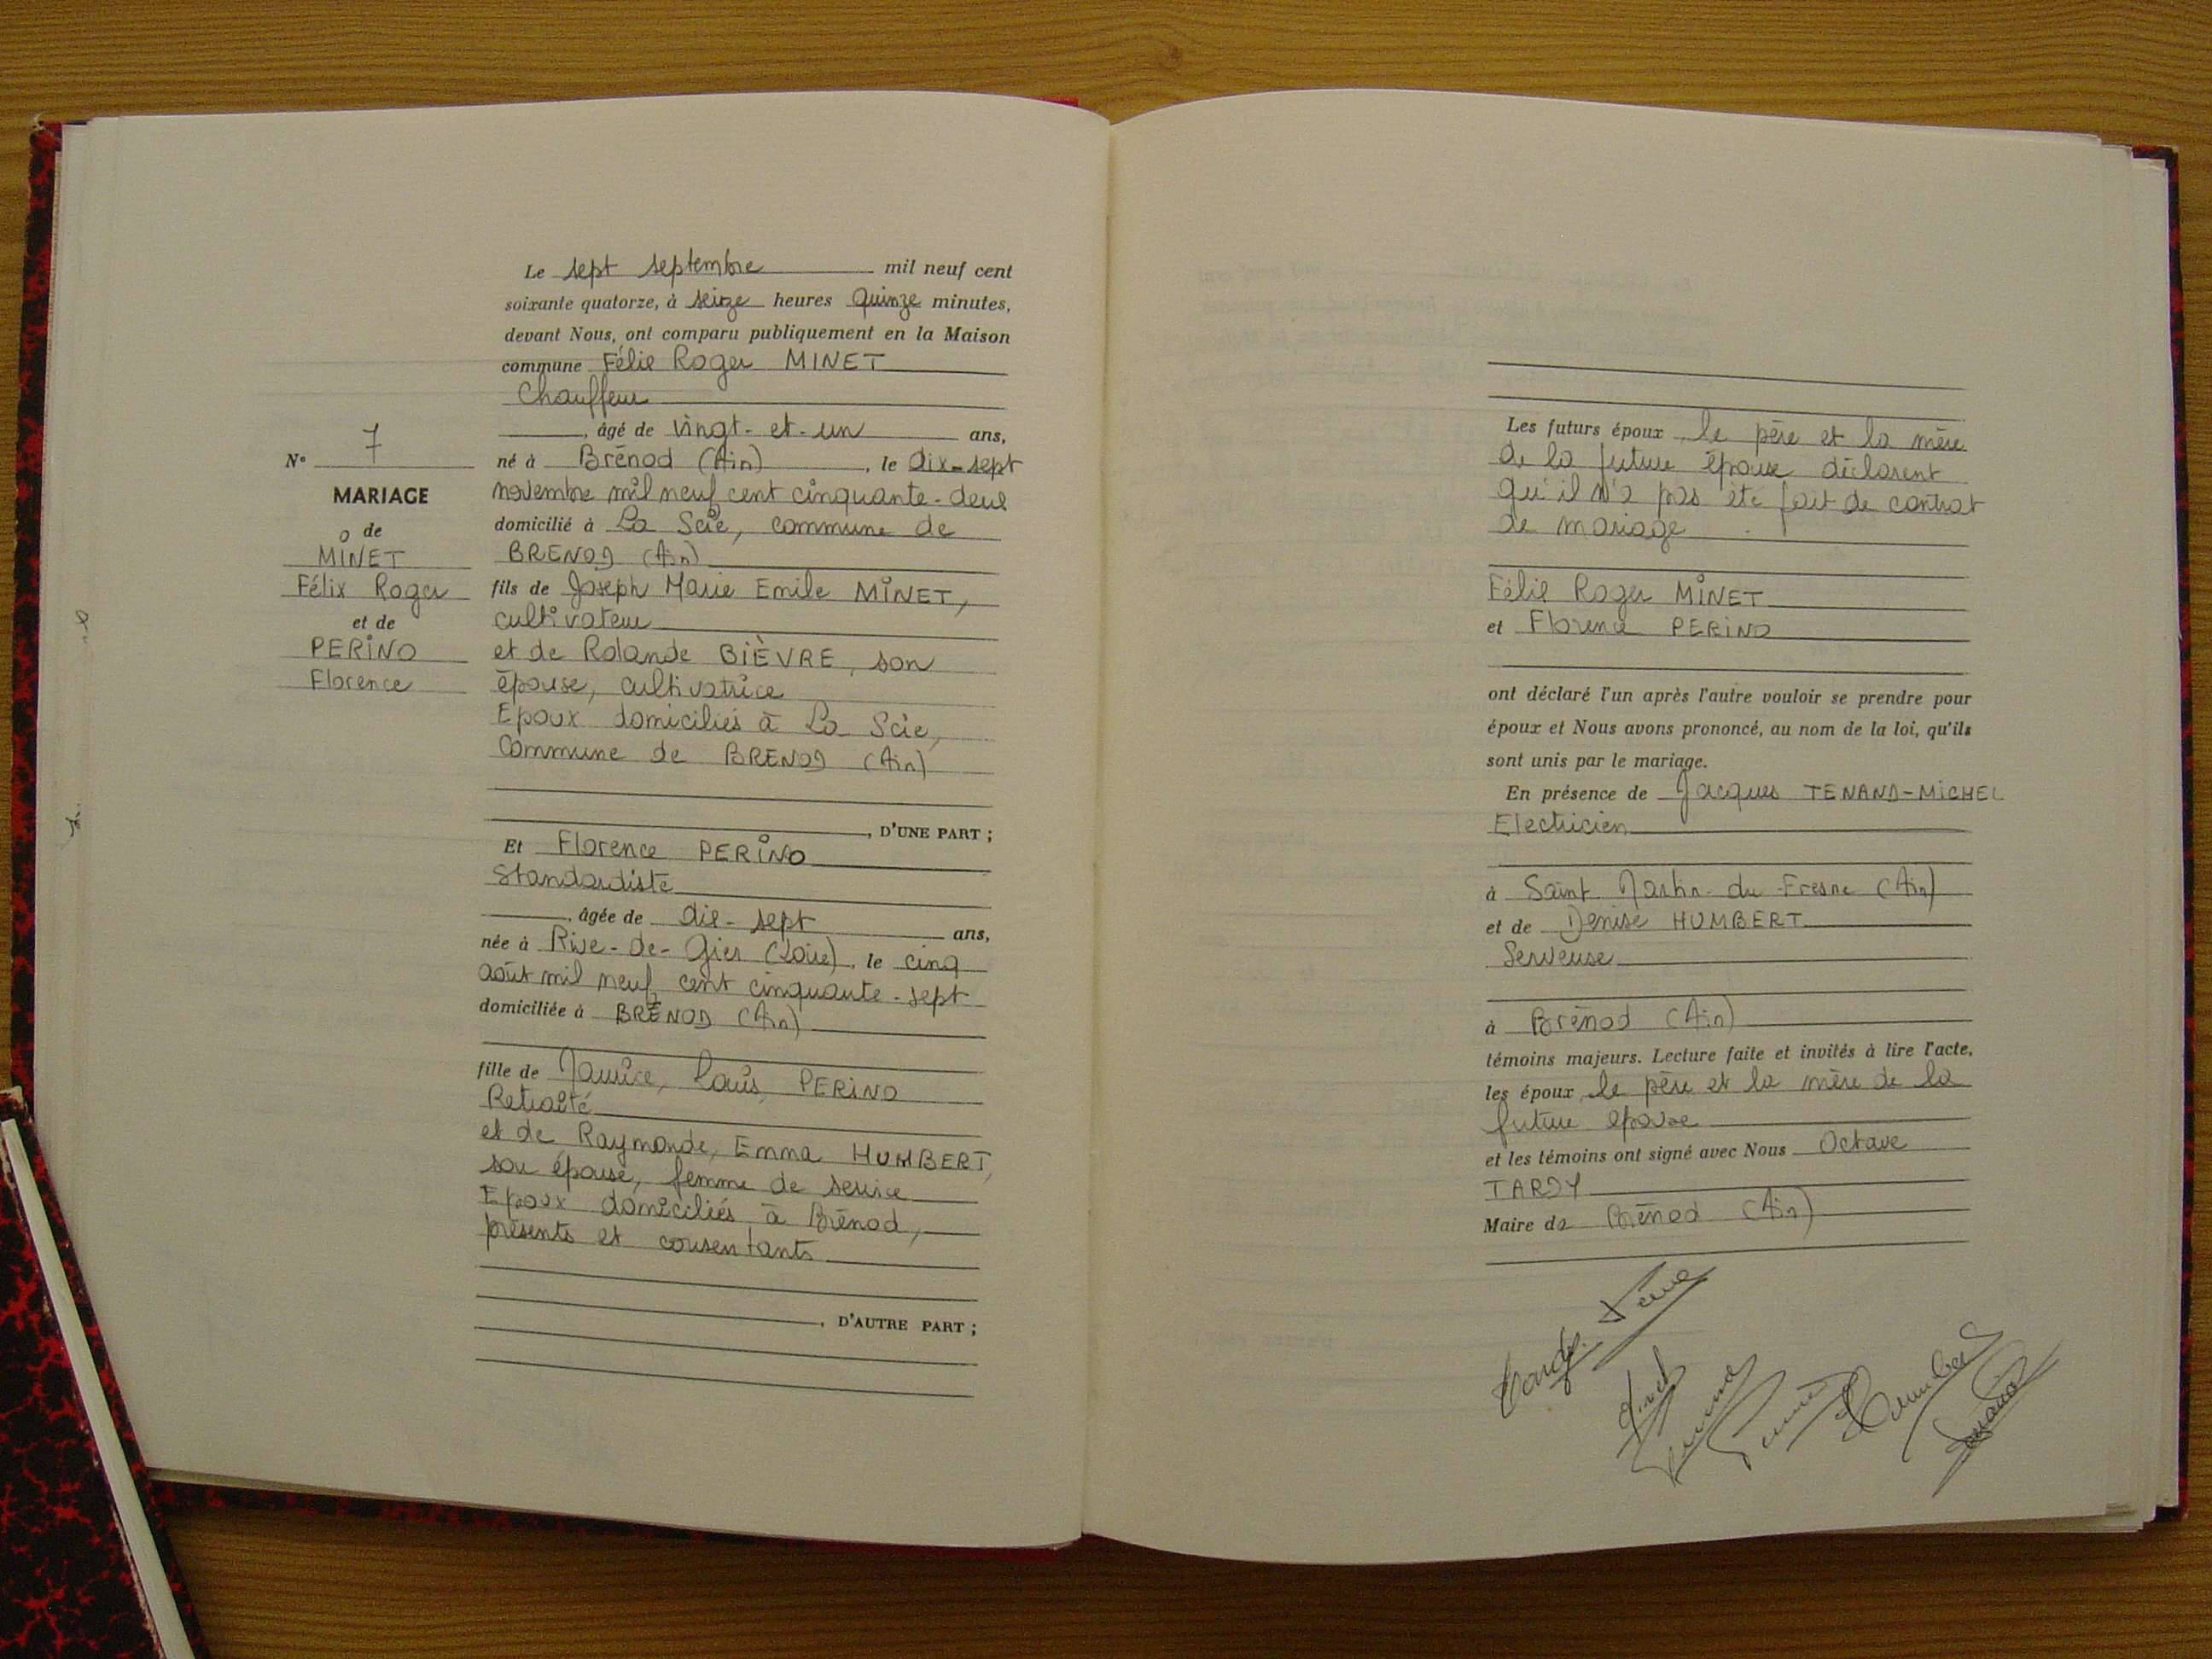 Le sept septembre mil neuf cent
soixante quatorze, à seize heures quinze minutes,
devant Nous, ont comparu publiquement en la Maison
commune Félix Roger MINET
Chauffeur
, âgé de vingt-et-un ans,
né à Brénod (Ain), le dix-sept
novembre mil neuf cent cinquante-deux
domicilié à La Scie, commune de
BRENOD (Ain)
fils de Joseph Marie Emile MINET,
cultivateur
et de Rolande BIÈVRE, son
épouse, cultivatrice
Epoux domiciliés à La Scie,
Commune de BRENOD (Ain)
, D'UNE PART ;
Et Florence PERINO
Standardiste
, âgée de dix-sept ans,
née à Rive-de-Gier (Loire), le cinq
août mil neuf cent cinquante-sept
domiciliée à BRÉNOD (Ain)
fille de Maurice, Louis, PERINO
Retraité
et de Raymonde, Emma HUMBERT,
son épouse, femme de service
Epoux domiciliés à Brénod,
présents et consentants
, D'AUTRE PART ;
N° 7
MARIAGE
de
MINET
Félix Roger
et de
PERINO
Florence
Les futurs époux, le père et la mère
de la future épouse déclarent
qu'il n'a pas été fait de contrat
de mariage
Félix Roger MINET
et Florence PERINO
ont déclaré l'un après l'autre vouloir se prendre pour
époux et Nous avons prononcé, au nom de la loi, qu'ils
sont unis par le mariage.
En présence de Jacques TENAND-MICHEL
Electricien
à Saint Martin-du-Fresne (Ain)
et de Denise HUMBERT
Serveuse
à Brénod (Ain)
témoins majeurs. Lecture faite et invités à lire l'acte,
les époux, le père et la mère de la
future épouse
et les témoins ont signé avec Nous Octave
TARDY
Maire de Brénod (Ain)